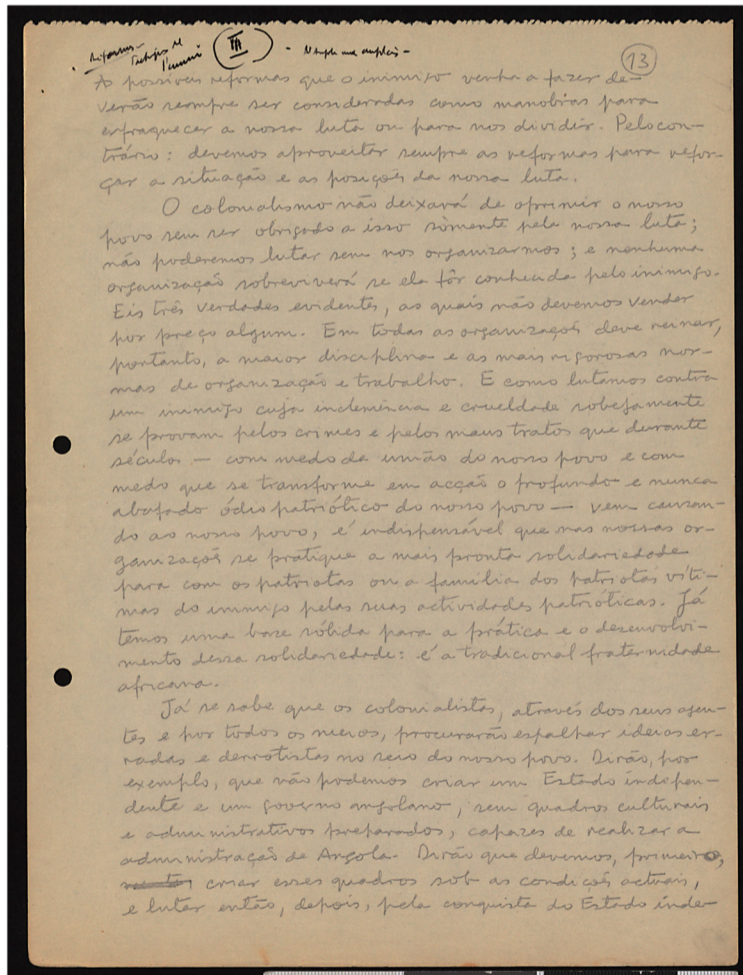 Reformas
III
13
As possíveis reformas que o inimigo venha a fazer de-
verão sempre ser consideradas como manobras para
enfraquecer a nossa luta ou para nos dividir. Pelo con-
trário: devemos aproveitar sempre as reformas para refor-
çar a situação e as posições da nossa luta.
O colonialismo não deixará de oprimir o nosso
povo sem ser obrigado a isso sòmente pela nossa luta;
não poderemos lutar sem nos organizarmos; e nenhuma
organização sobreviverá se ela fôr conhecida pelo inimigo.
Eis três verdades evidentes, as quais não devemos vender
por preço algum. Em todas as organizações deve reinar,
portanto, a maior disciplina e as mais rigorosas nor-
mas de organização e trabalho. E como lutamos contra
um inimigo cuja inclemência e crueldade sobejamente
se provam pelos crimes e pelos maus tratos que durante
séculos — com medo da união do nosso povo e com
medo que se transforme em acção o profundo e nunca
abafado ódio patriótico do nosso povo — vem causan-
do ao nosso povo, é indispensável que nas nossas or-
ganizações se pratique a mais pronta solidariedade
para com os patriotas ou a família dos patriotas víti-
mas do inimigo pelas suas actividades patrióticas. Já
temos uma base sólida para a prática e o desenvolvi-
mento dessa solidariedade: é a tradicional fraternidade
africana.
Já se sabe que os colonialistas, através dos seus agen-
tes e por todos os meios, procurarão espalhar ideias er-
radas e derrotistas no seio do nosso povo. Dirão, por
exemplo, que não podemos criar um Estado indepen-
dente e um governo angolano, sem quadros culturais
e administrativos preparados, capazes de realizar a
administração de Angola. Dirão que devemos, primeiro,
criar esses quadros sob as condições actuais,
e lutar então, depois, pela conquista do Estado inde-